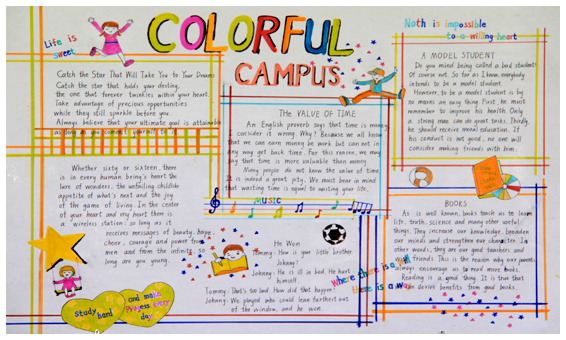 Life is
sweet
COLORFUL
CAMPUS
Noth is impossible
to a willing heart
Catch the Star That Will Take You to Your Dreams
Catch the star that holds your destiny,
the one that forever twinkles within your heart.
Take advantage of precious opportunities
while they still sparkle before you.
Always believe that your ultimate goal is attainable
as long as you commit yourself to it.
THE VALUE OF TIME
An English proverb says that time is money.
I consider is wrong. Why? Because we all know
that we can earn money be work but can not in
any way get back time. For this reason, we may
say that time is more valuable than money.
Many people do not know the value of time.
It is indeed a great pity. We must bear in mind
that wasting time is equal to wasting your life.
MUSIC
A MODEL STUDENT
Do you mind being called a bad student?
Of course not. So far as I know, everybody
intends to be a model student.
However, to be a model student is by
no means an easy thing. First, he must
remember to improve his health. Only
a strong man can do great tasks. Thirdly,
he should receive moral education. If
his conduct is not good, no one will
consider making friends with him.
Whether sixty or sixteen, there
is in every human being's heart the
lure of wonders, the unfailing childlike
appetite of what's next and the joy
of the game of living. In the center
of your heart and my heart there is
a wireless station: so long as it
receives messages of beauty, hope,
cheer, courage and power from
men and from the infinite, so
long are you young.
Study
hard
and make
Progress Every
day
He Won
Tommy: How is your little brother,
Johnny?
Johnny: He is ill in bed. He hurt
himself.
Tommy: That's too bad. How did that happen?
Johnny: We played who could lean farthest out
of the window, and he won.
Where there is a will
there is a way
BOOKS
As is well known, books teach us to learn
life, truth, science and many other useful
things. They increase our knowledge, broaden
our minds and strengthen our character. In
other words, they are our good teachers and
friends. This is the reason why our parents
always encourage us to read more books.
Reading is a good thing. It is true that
derive benefits from good books.